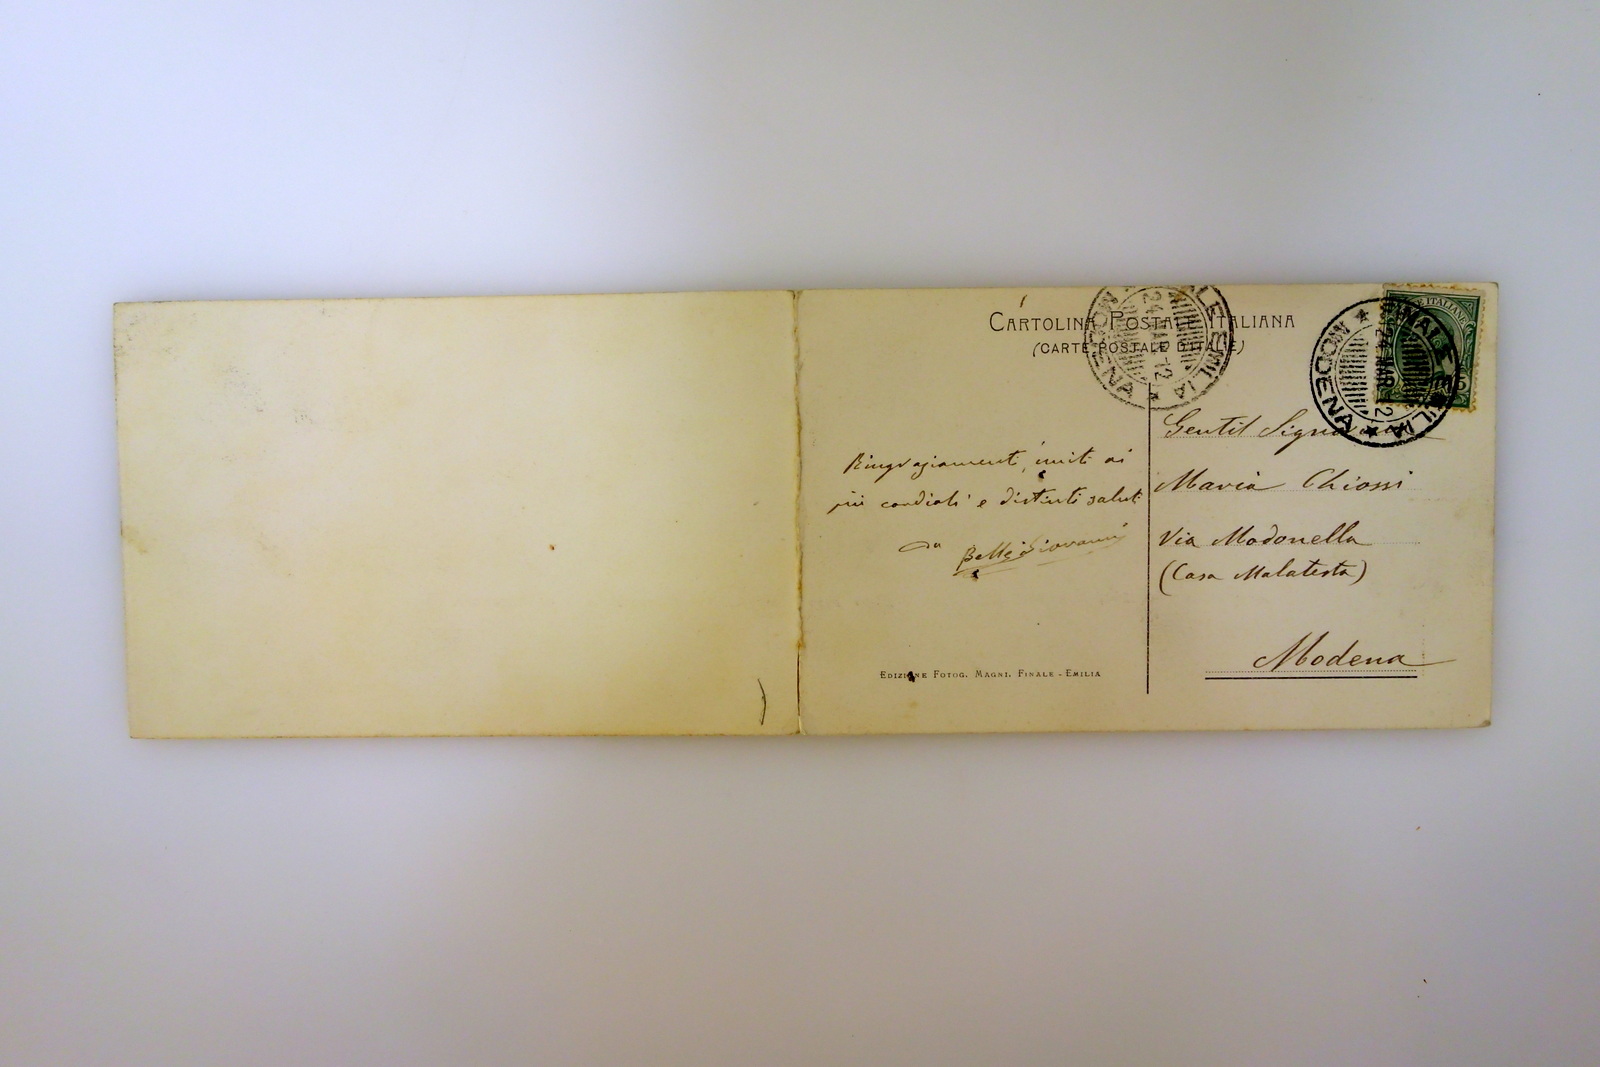 CARTOLINA POSTALE ITALIANA
(CARTE POSTALE D'ITALIE)
FINALE EMILIA
MODENA
24 MAR 12
FINALE EMILIA
MODENA
24 MAR 12
E ITALIANE
5
Ringraziamenti, uniti ai
più cordiali e distinti saluti
da Giovanni
Gentil Signorina
Maria Chiossi
Via Modonella
(Casa Malatesta)
Modena
EDIZIONE FOTOG. MAGNI. FINALE - EMILIA